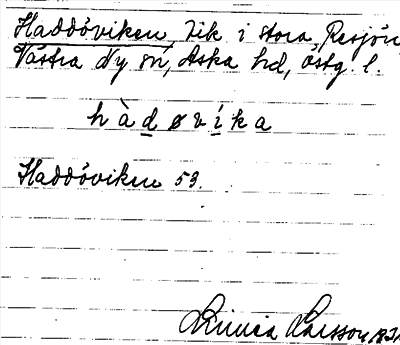 Haddöviken, Vik i stora Resjön
Västra Ny sn, Aska hd, Östg. l.
hàdøvíka
Haddöviken 53.
Linnea Larsson